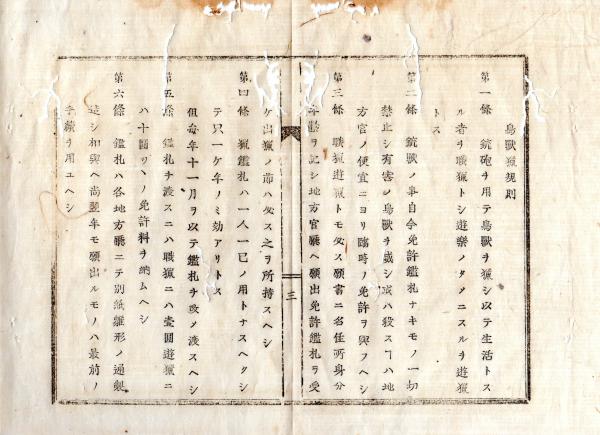 鳥獣猟規則
第一條 銃砲ヲ用テ鳥獣ヲ猟シ以テ生活トス
ル者ヲ職猟トシ遊樂ノタメニスルヲ遊猟
トス
第二條 銃猟ノ事自今免許鑑札ナキモノ一切
禁止シ有害ノ鳥獣ヲ威シ或ハ殺スヿハ地
方官ノ便宜ニヨリ臨時ノ免許ヲ與フヘシ
第三條 職猟遊猟トモ必ス願書ニ名住所身分
年齢ヲ記シ地方官廳ヘ願出免許鑑札ヲ受
ケ出猟ノ節ハ必ス之ヲ所持スヘシ
三
第四條 猟鑑札ハ一人一己ノ用トナスヘクシ
テ只一ケ年ノミ効アリトス
但毎年十一月ヲ以テ鑑札ヲ改メ渡スヘシ
第五條 鑑札ヲ渡スニハ職猟ニハ壹圓遊猟ニ
ハ十圓ツヽノ免許料ヲ納ムヘシ
第六條 鑑札ハ各地方廳ニテ別紙雛形ノ通製
造シ相與ヘ尚翌年モ願出ルモノハ最前ノ
手續ヲ用ユヘシ